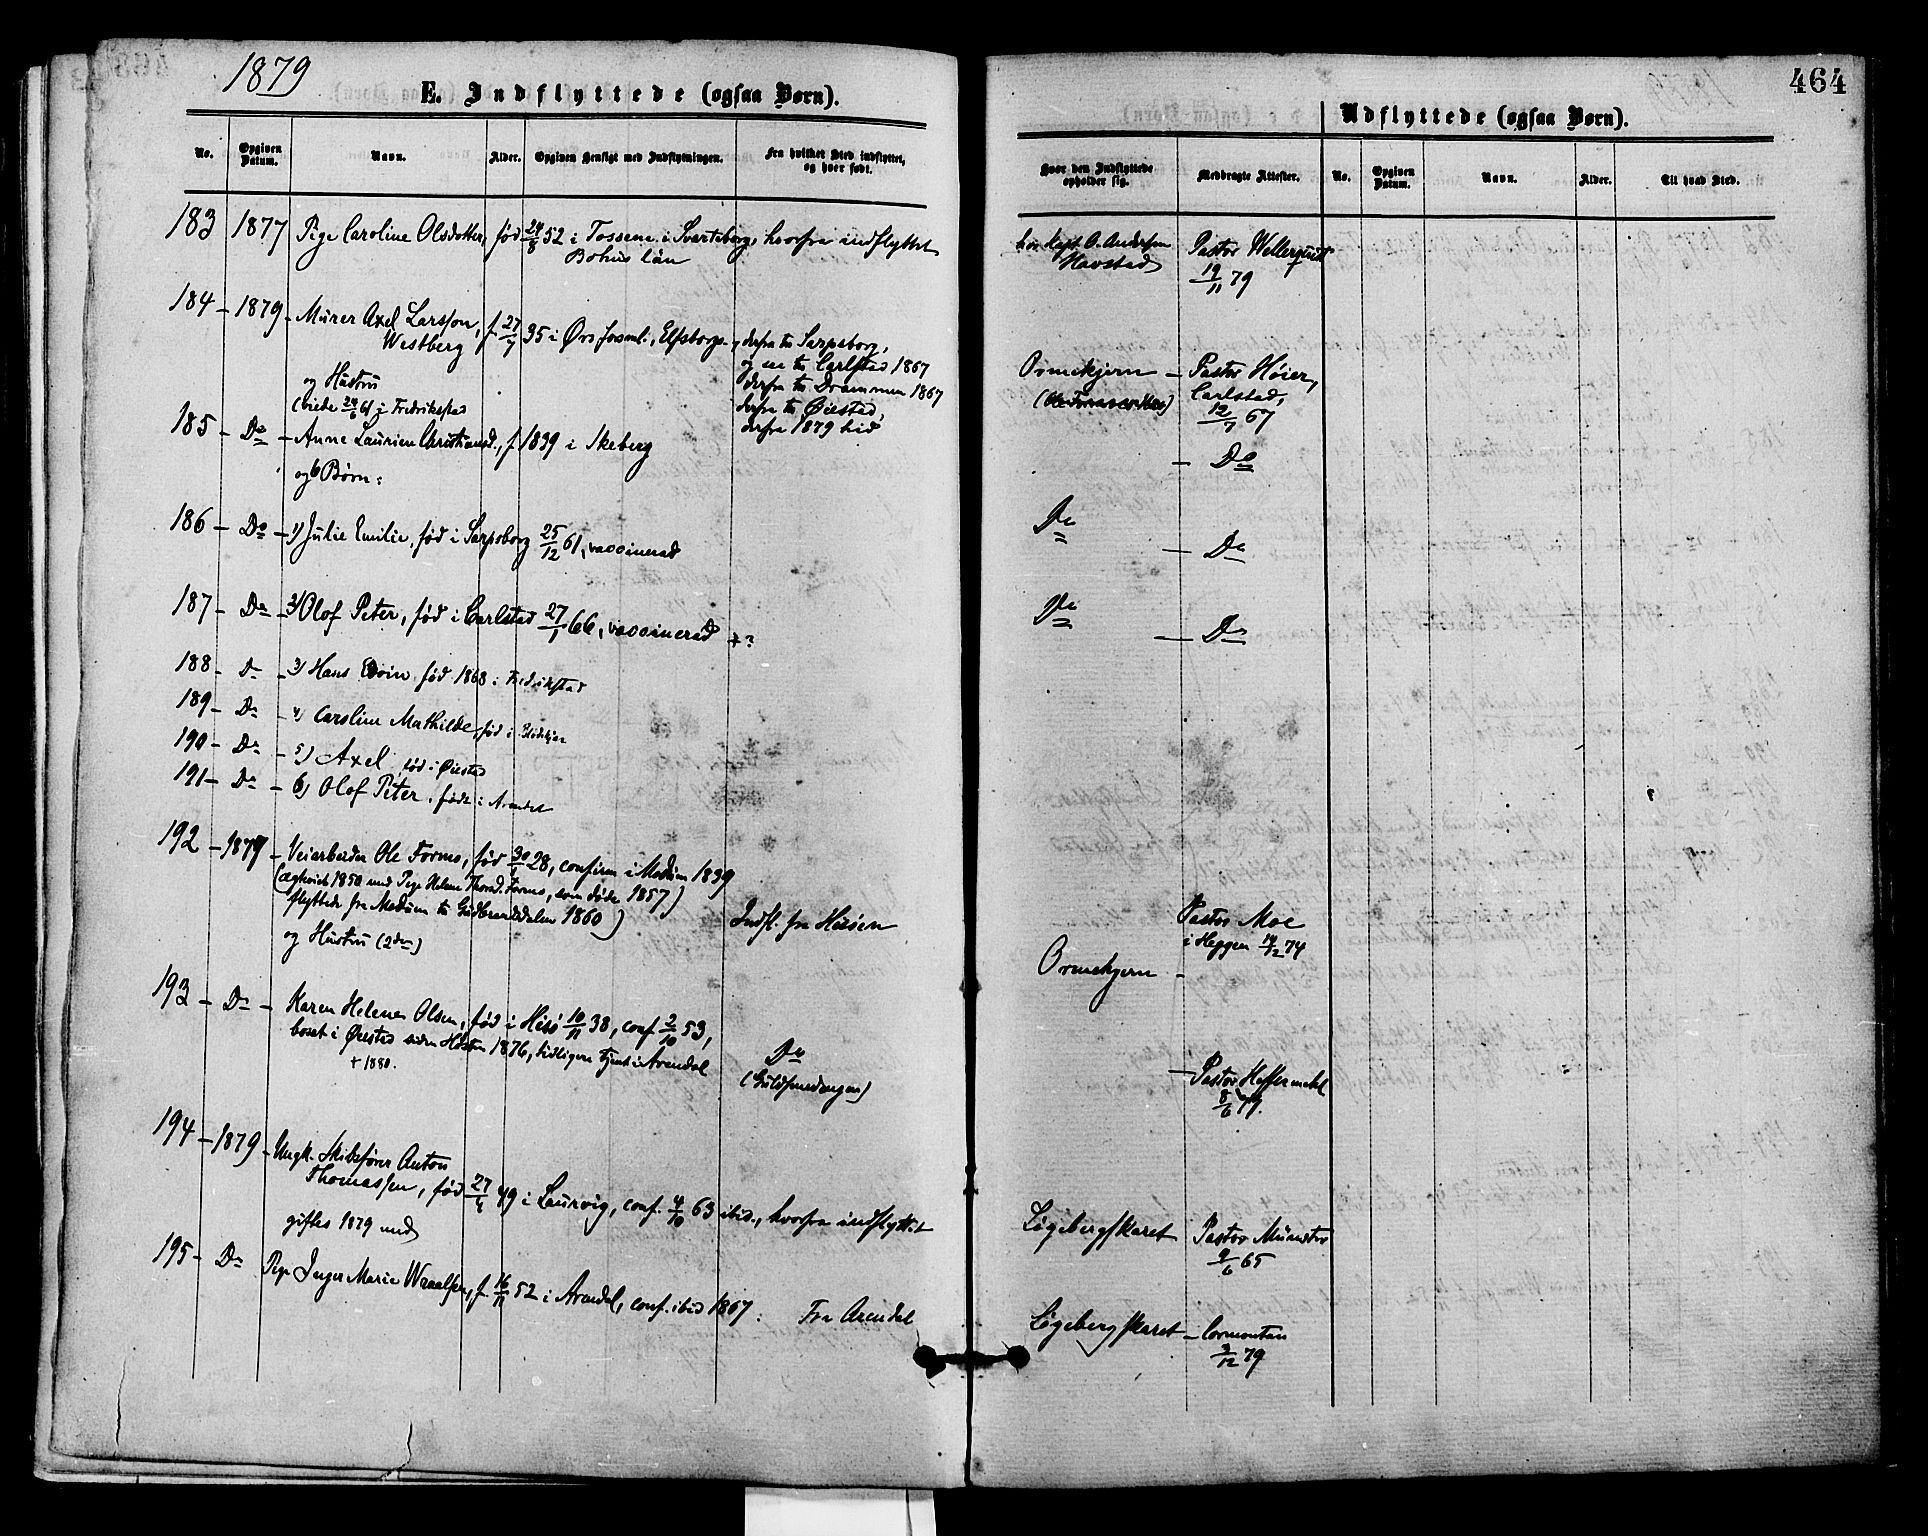 1879
464
E. Indflyttede (ogsaa Børn).
Udflyttede (ogsaa Børn).
No. Opgiven Datum. Navn. Alder. Opgiven Hensigt med Indflytningen. Fra hvilket Sted indflyttet, og hvor født.
Hvor den Indflyttede opholder sig. Medbragte Attester. No. Opgiven Datum. Navn. Alder. Til hvad Sted.
183 1877 Pige Caroline Olsdotter, fød 24/8 52 i Tossene i Svarteborg, hvorfra indflyttet
Bohus län
hos Kapt. O. Andersen
Havstad
Pastor Wellerquist
19/11 79
184 - 1879 - Murer Axel Larsson, f. 27/7 35 i Ørs , Elfsborgs , derfra til Sarpsborg,
Westberg
og til Carlstad 1867
derfra til Drammen 1867
derfra til Øiestad,
derfra 1879 hid
Ormekjern - Pastor Höier,
Carlstad,
12/7 67
og Hustru
(viede 24/6 61 i Fredrikstad
185 - Do - Anne Laurine Christiansd., f. 1839 i Skeberg
- Do
og 6 Børn:
186 - Do - 1) Julie Emilie, fød i Sarpsborg 25/12 61, vaccinerad
Do
- Do
187 - Do - 2) Olof Peter, fød i Carlstad 27/1 66, vaccinerad +?
Do
- Do
188 - Do - 3) Hans Edvin fød 1868 i Fredrikstad
189 - Do - 4) Caroline Mathilde, fød i
190 - Do - 5) Axel, fød i Øiestad
191 - Do - 6) Olof Peter, født i Arendal
192 - 1879 - Veiarbeider Ole Formo, fød 30/ 28, confirm i Modum 1839
(ægteviet 1850 med Pige Helene Thorsd. Formo, som døde 1857)
flyttede fra Modum til Gudbrandsdalen 1860)
Indfl. fra Hisøen
og Hustru (2den)
Pastor Moe
i Heggen 14/2 74
Ormekjern -
193 - Do - Karen Helene Olsen, fød i Hisö 10/11 38, conf. 2/10 53,
bosat i Øiestad siden Høsten 1876, tidligere tjent i Arendal
+ 1880.
Do
(Guldsmedengen)
- Pastor
8/6 79.
194 - 1879 - Ungk. Skibsfører Anton
Thomassen, fød 27/4 49 i Laurvig, conf. 4/10 63 ibid., hvorfra indflyttet
Løgebergskaret Pastor Münster
9/6 65
giftes 1879 med
195 - Do Pige Inger Marie Wraalsen, f. 16/11 52 i Arendal, conf. ibid 1867. Fra Arendal
Løgebergskaret - Cormontan
3/12 79